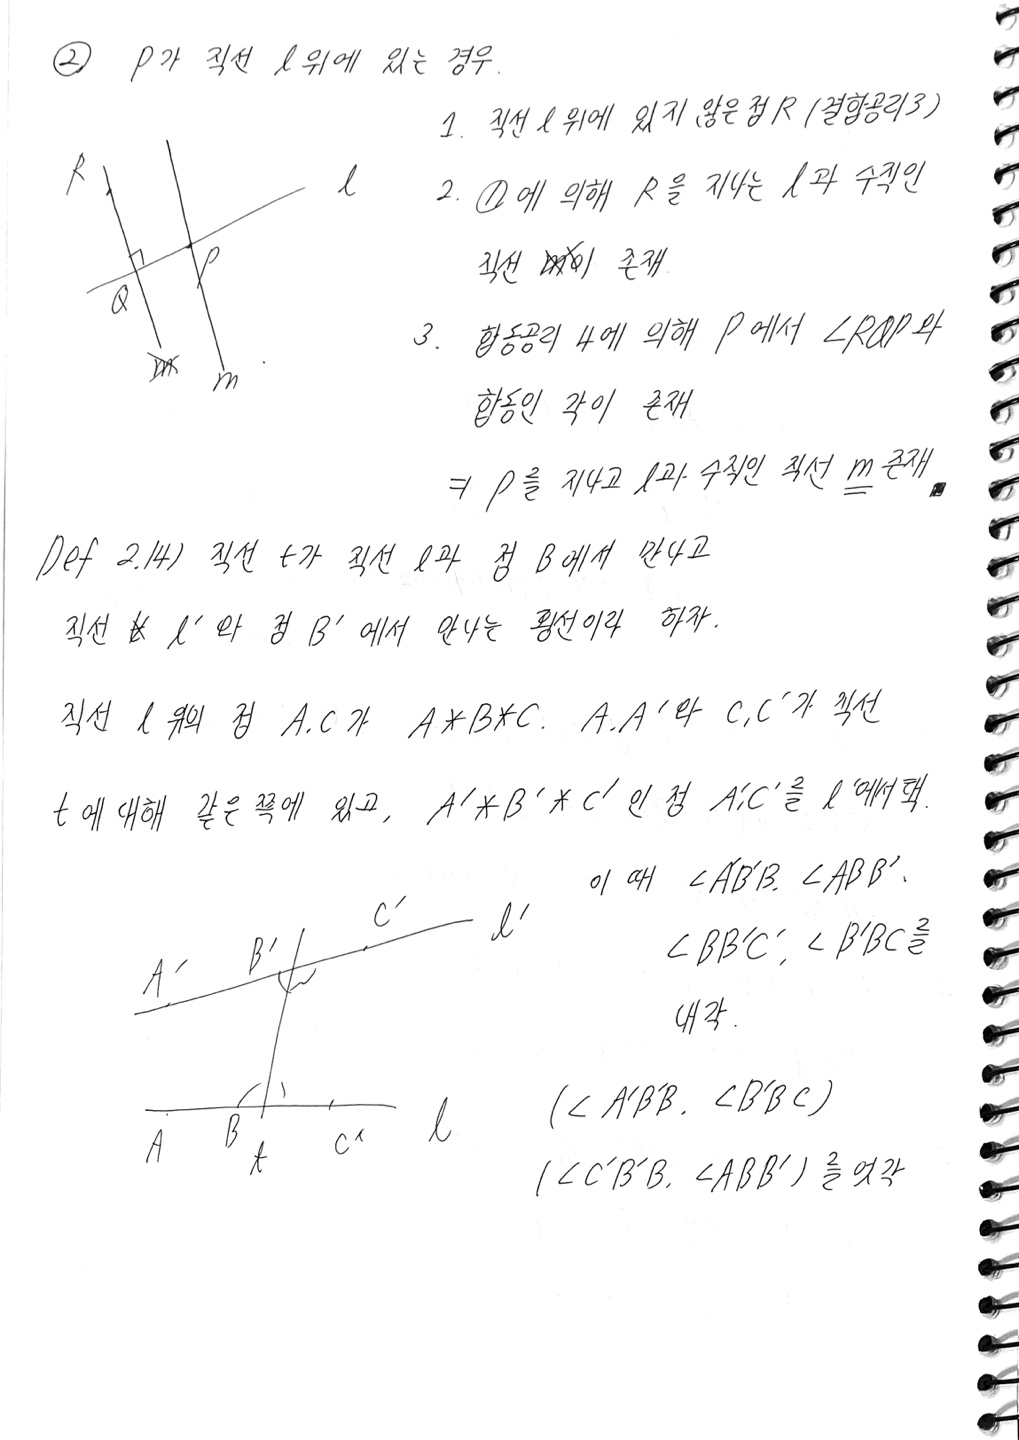 ② P가 직선 l 위에 있는 경우.
1. 직선 l 위에 있지 않은 점 R (결합공리3)
2. ①에 의해 R을 지나는 l과 수직인
직선 이 존재
3. 합동공리 4에 의해 P에서 ∠RQP와
합동인 각이 존재
⇒ P를 지나고 l과 수직인 직선 m 존재.
R
l
P
Q
m
m
Def 2.14) 직선 t가 직선 l과 점 B에서 만나고
직선 l′와 점 B′에서 만나는 횡선이라 하자.
직선 l 위의 점 A.C가 A*B*C. A.A′와 C,C′가 직선
t에 대해 같은 쪽에 있고, A′*B′*C′인 점 A′,C′를 l′에서 택.
이때 ∠A′B′B. ∠ABB′.
∠BB′C′, ∠B′BC를
내각.
(∠A′B′B. ∠B′BC)
(∠C′B′B. ∠ABB′)를 엇각
A′
B′
C′
l′
A
B
t
C
l